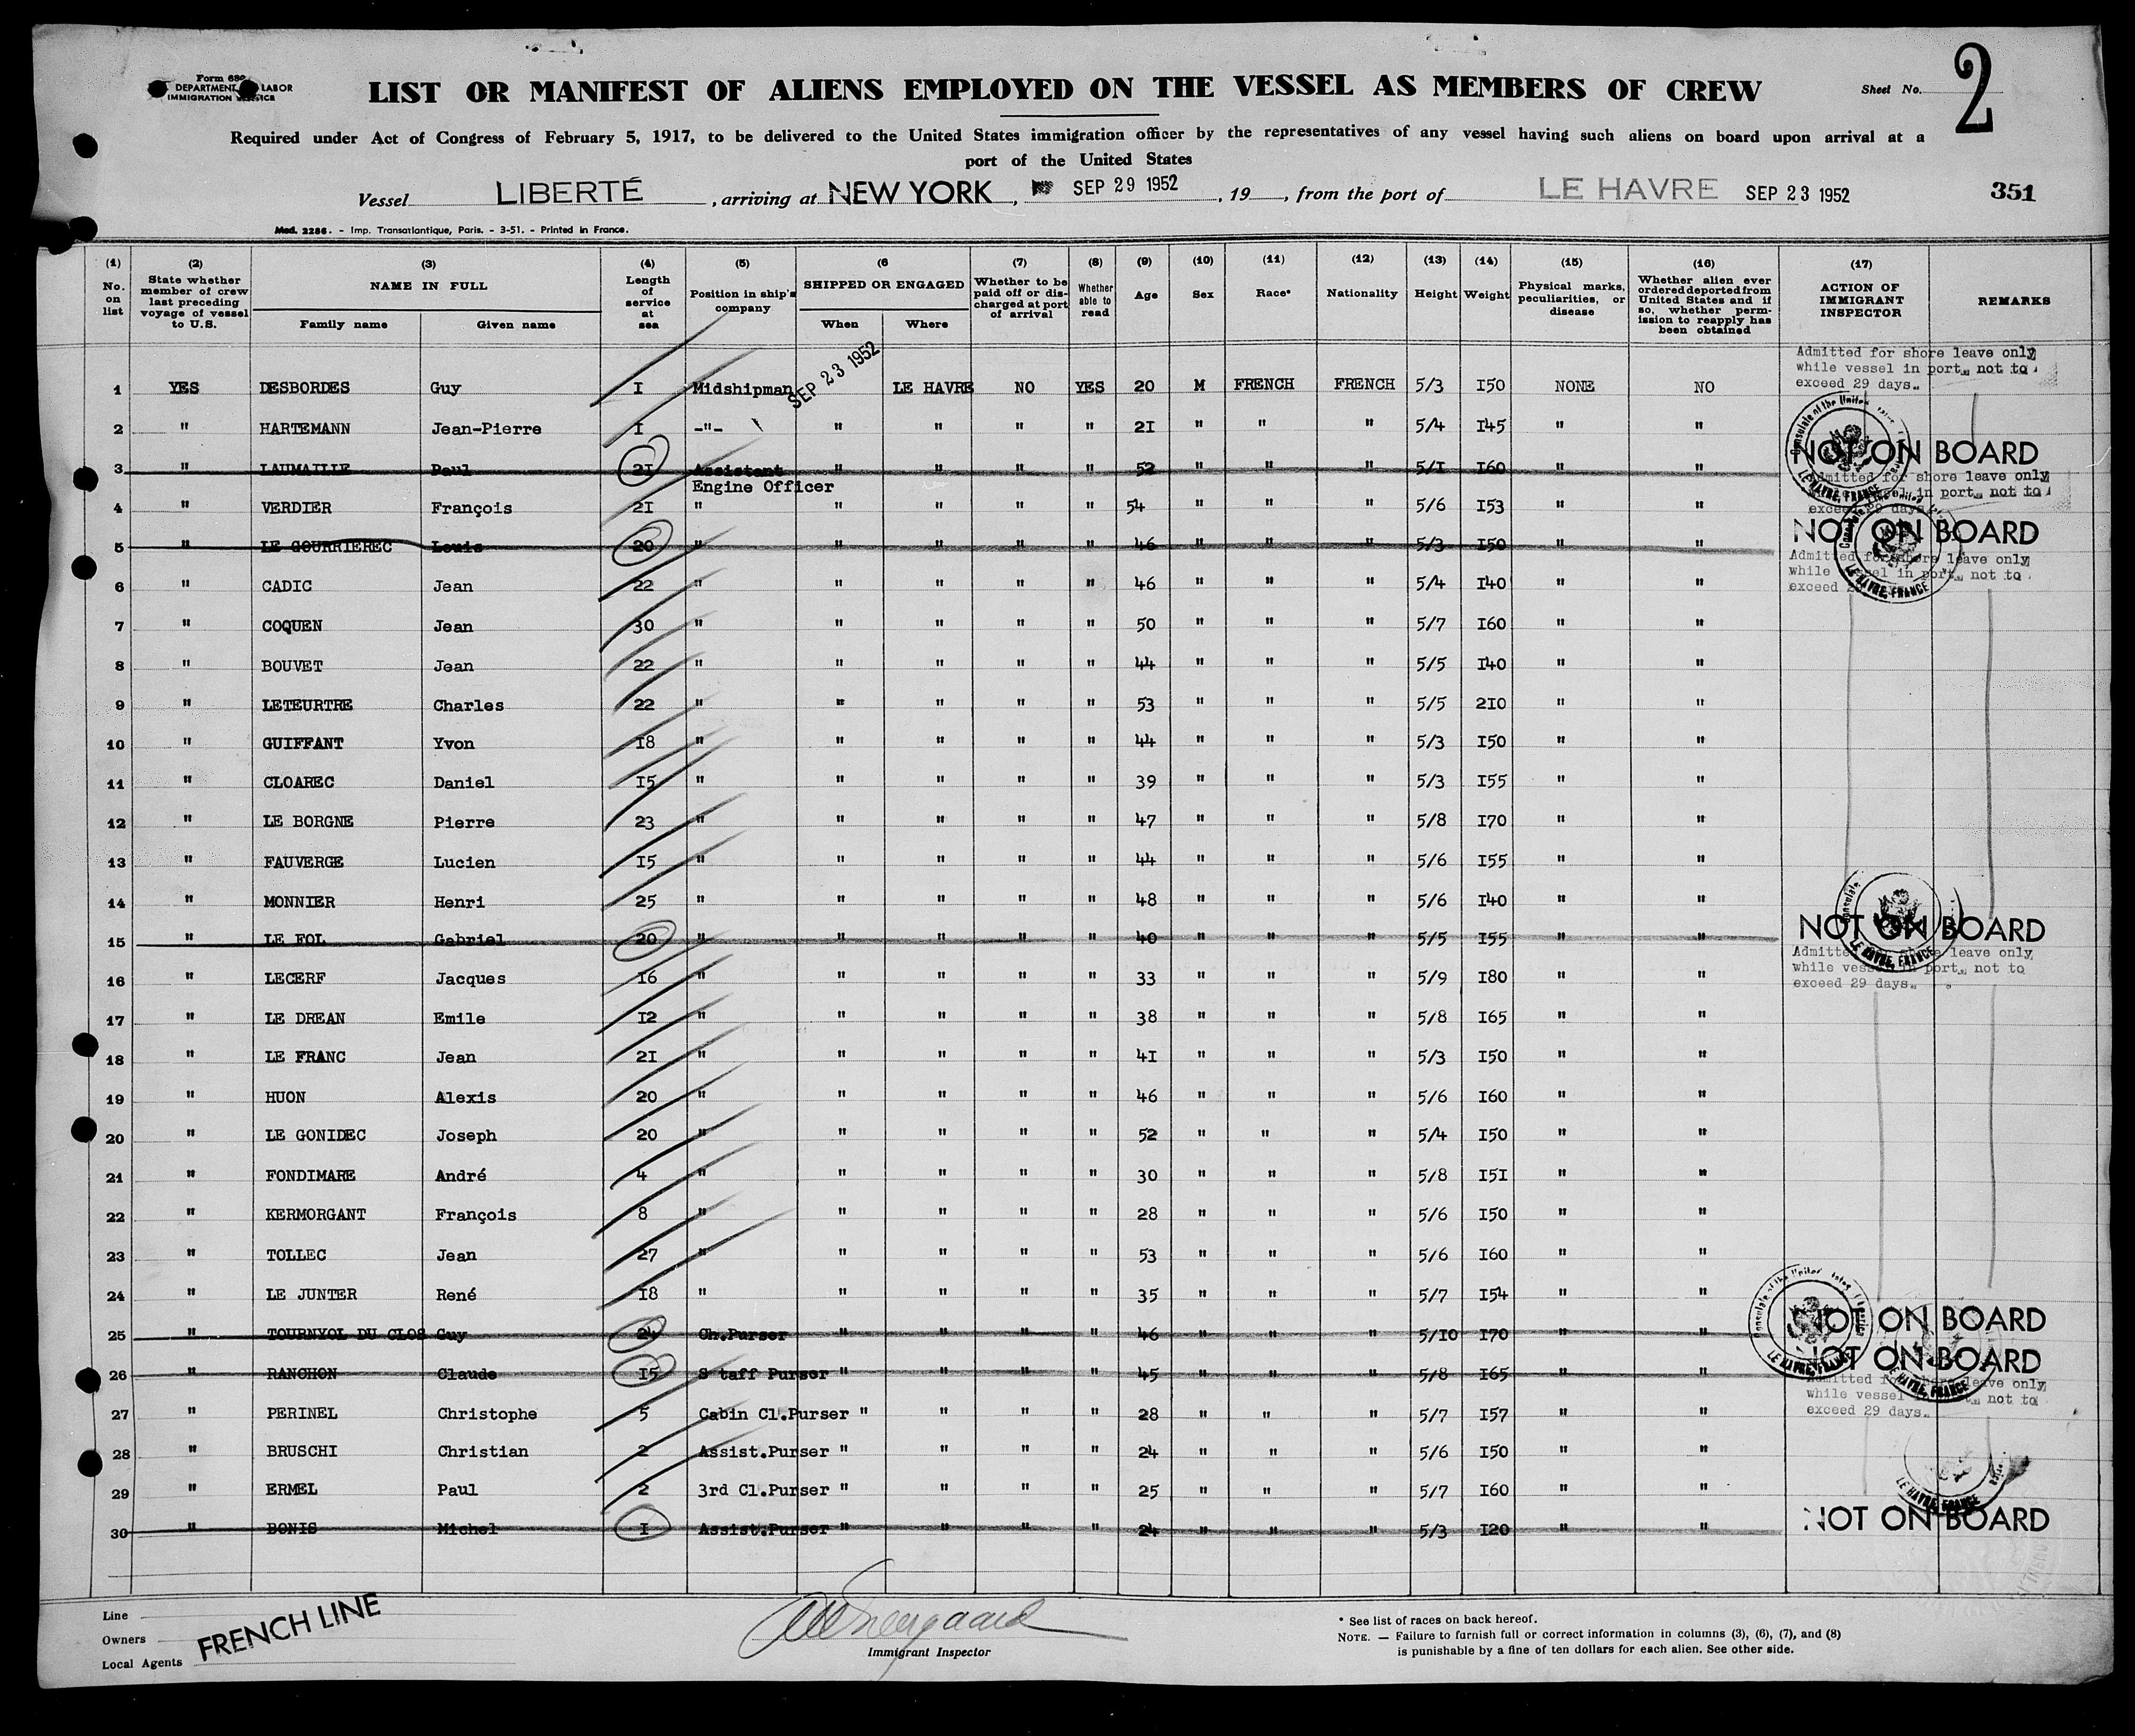 Form 680
DEPARTMENT LABOR
IMMIGRATION SERVICE
LIST OR MANIFEST OF ALIENS EMPLOYED ON THE VESSEL AS MEMBERS OF CREW
Sheet No. 2
Required under Act of Congress of February 5, 1917, to be delivered to the United States immigration officer by the representatives of any vessel having such aliens on board upon arrival at a
port of the United States
Vessel LIBERTÉ, arriving at NEW YORK, SEP 29 1952, 19 , from the port of LE HAVRE SEP 23 1952 351
Mod. 2286. - Imp. Transatlantique, Paris. - 3-51. - Printed in France.
(1) No. on list (2) State whether member of crew last preceding voyage of vessel to U.S. (3) NAME IN FULL Family name Given name (4) Length of service at sea (5) Position in ship's company (6 SHIPPED OR ENGAGED When Where (7) Whether to be paid off or discharged at port of arrival (8) Whether able to read (9) Age (10) Sex (11) Race* (12) Nationality (13) Height (14) Weight (15) Physical marks, peculiarities, or disease (16) Whether alien ever ordered deported from United States and if so, whether permission to reapply has been obtained (17) ACTION OF IMMIGRANT INSPECTOR REMARKS
Admitted for shore leave only
while vessel in port, not to
exceed 29 days.
1 YES DESBORDES Guy I Midshipman SEP 23 1952 LE HAVRE NO YES 20 M FRENCH FRENCH 5/3 I50 NONE NO
2 " HARTEMANN Jean-Pierre I -"- " " " " 2I " " " 5/4 I45 " "
3 " LAUMAILLE Paul 2I Assistant " " " " 52 " " " 5/I I60 " " NOT ON BOARD
Engine Officer
Admitted for shore leave only
in port, not to
exceed 29 days
4 " VERDIER François 2I " " " " " 54 " " " 5/6 I53 " "
5 " LE GOURRIEREC Louis 20 " " " " " 46 " " " 5/3 I50 " " NOT ON BOARD
Admitted for shore leave only
while vessel in port, not to
exceed
6 " CADIC Jean 22 " " " " " 46 " " " 5/4 I40 " "
7 " COQUEN Jean 30 " " " " " 50 " " " 5/7 I60 " "
8 " BOUVET Jean 22 " " " " " 44 " " " 5/5 I40 " "
9 " LETEURTRE Charles 22 " " " " " 53 " " " 5/5 2I0 " "
10 " GUIFFANT Yvon I8 " " " " " 44 " " " 5/3 I50 " "
11 " CLOAREC Daniel I5 " " " " " 39 " " " 5/3 I55 " "
12 " LE BORGNE Pierre 23 " " " " " 47 " " " 5/8 I70 " "
13 " FAUVERGE Lucien I5 " " " " " 44 " " " 5/6 I55 " "
14 " MONNIER Henri 25 " " " " " 48 " " " 5/6 I40 " "
15 " LE FOL Gabriel 20 " " " " " 40 " " " 5/5 I55 " " NOT ON BOARD
Admitted for shore leave only
while vessel in port, not to
exceed 29 days.
16 " LECERF Jacques I6 " " " " " 33 " " " 5/9 I80 " "
17 " LE DREAN Emile I2 " " " " " 38 " " " 5/8 I65 " "
18 " LE FRANC Jean 2I " " " " " 4I " " " 5/3 I50 " "
19 " HUON Alexis 20 " " " " " 46 " " " 5/6 I60 " "
20 " LE GONIDEC Joseph 20 " " " " " 52 " " " 5/4 I50 " "
21 " FONDIMARE André 4 " " " " " 30 " " " 5/8 I5I " "
22 " KERMORGANT François 8 " " " " " 28 " " " 5/6 I50 " "
23 " TOLLEC Jean 27 " " " " " 53 " " " 5/6 I60 " "
24 " LE JUNTER René I8 " " " " " 35 " " " 5/7 I54 " "
25 " TOURNYOL DU CLOS Guy 24 Ch.Purser " " " " 46 " " " 5/I0 I70 " " NOT ON BOARD
26 " RANCHON Claude I5 S taff Purser " " " " 45 " " " 5/8 I65 " " NOT ON BOARD
Admitted for shore leave only
while vessel not to
exceed 29 days.
27 " PERINEL Christophe 5 Cabin Cl.Purser " " " " 28 " " " 5/7 I57 " "
28 " BRUSCHI Christian 2 Assist.Purser " " " " 24 " " " 5/6 I50 " "
29 " ERMEL Paul 2 3rd Cl.Purser " " " " 25 " " " 5/7 I60 " "
30 " BONIS Michel I Assist.Purser " " " " 24 " " " 5/3 I20 " " NOT ON BOARD
LE HAVRE, FRANCE
Line
Owners FRENCH LINE
Local Agents
Immigrant Inspector
* See list of races on back hereof.
NOTE. — Failure to furnish full or correct information in columns (3), (6), (7), and (8)
is punishable by a fine of ten dollars for each alien. See other side.